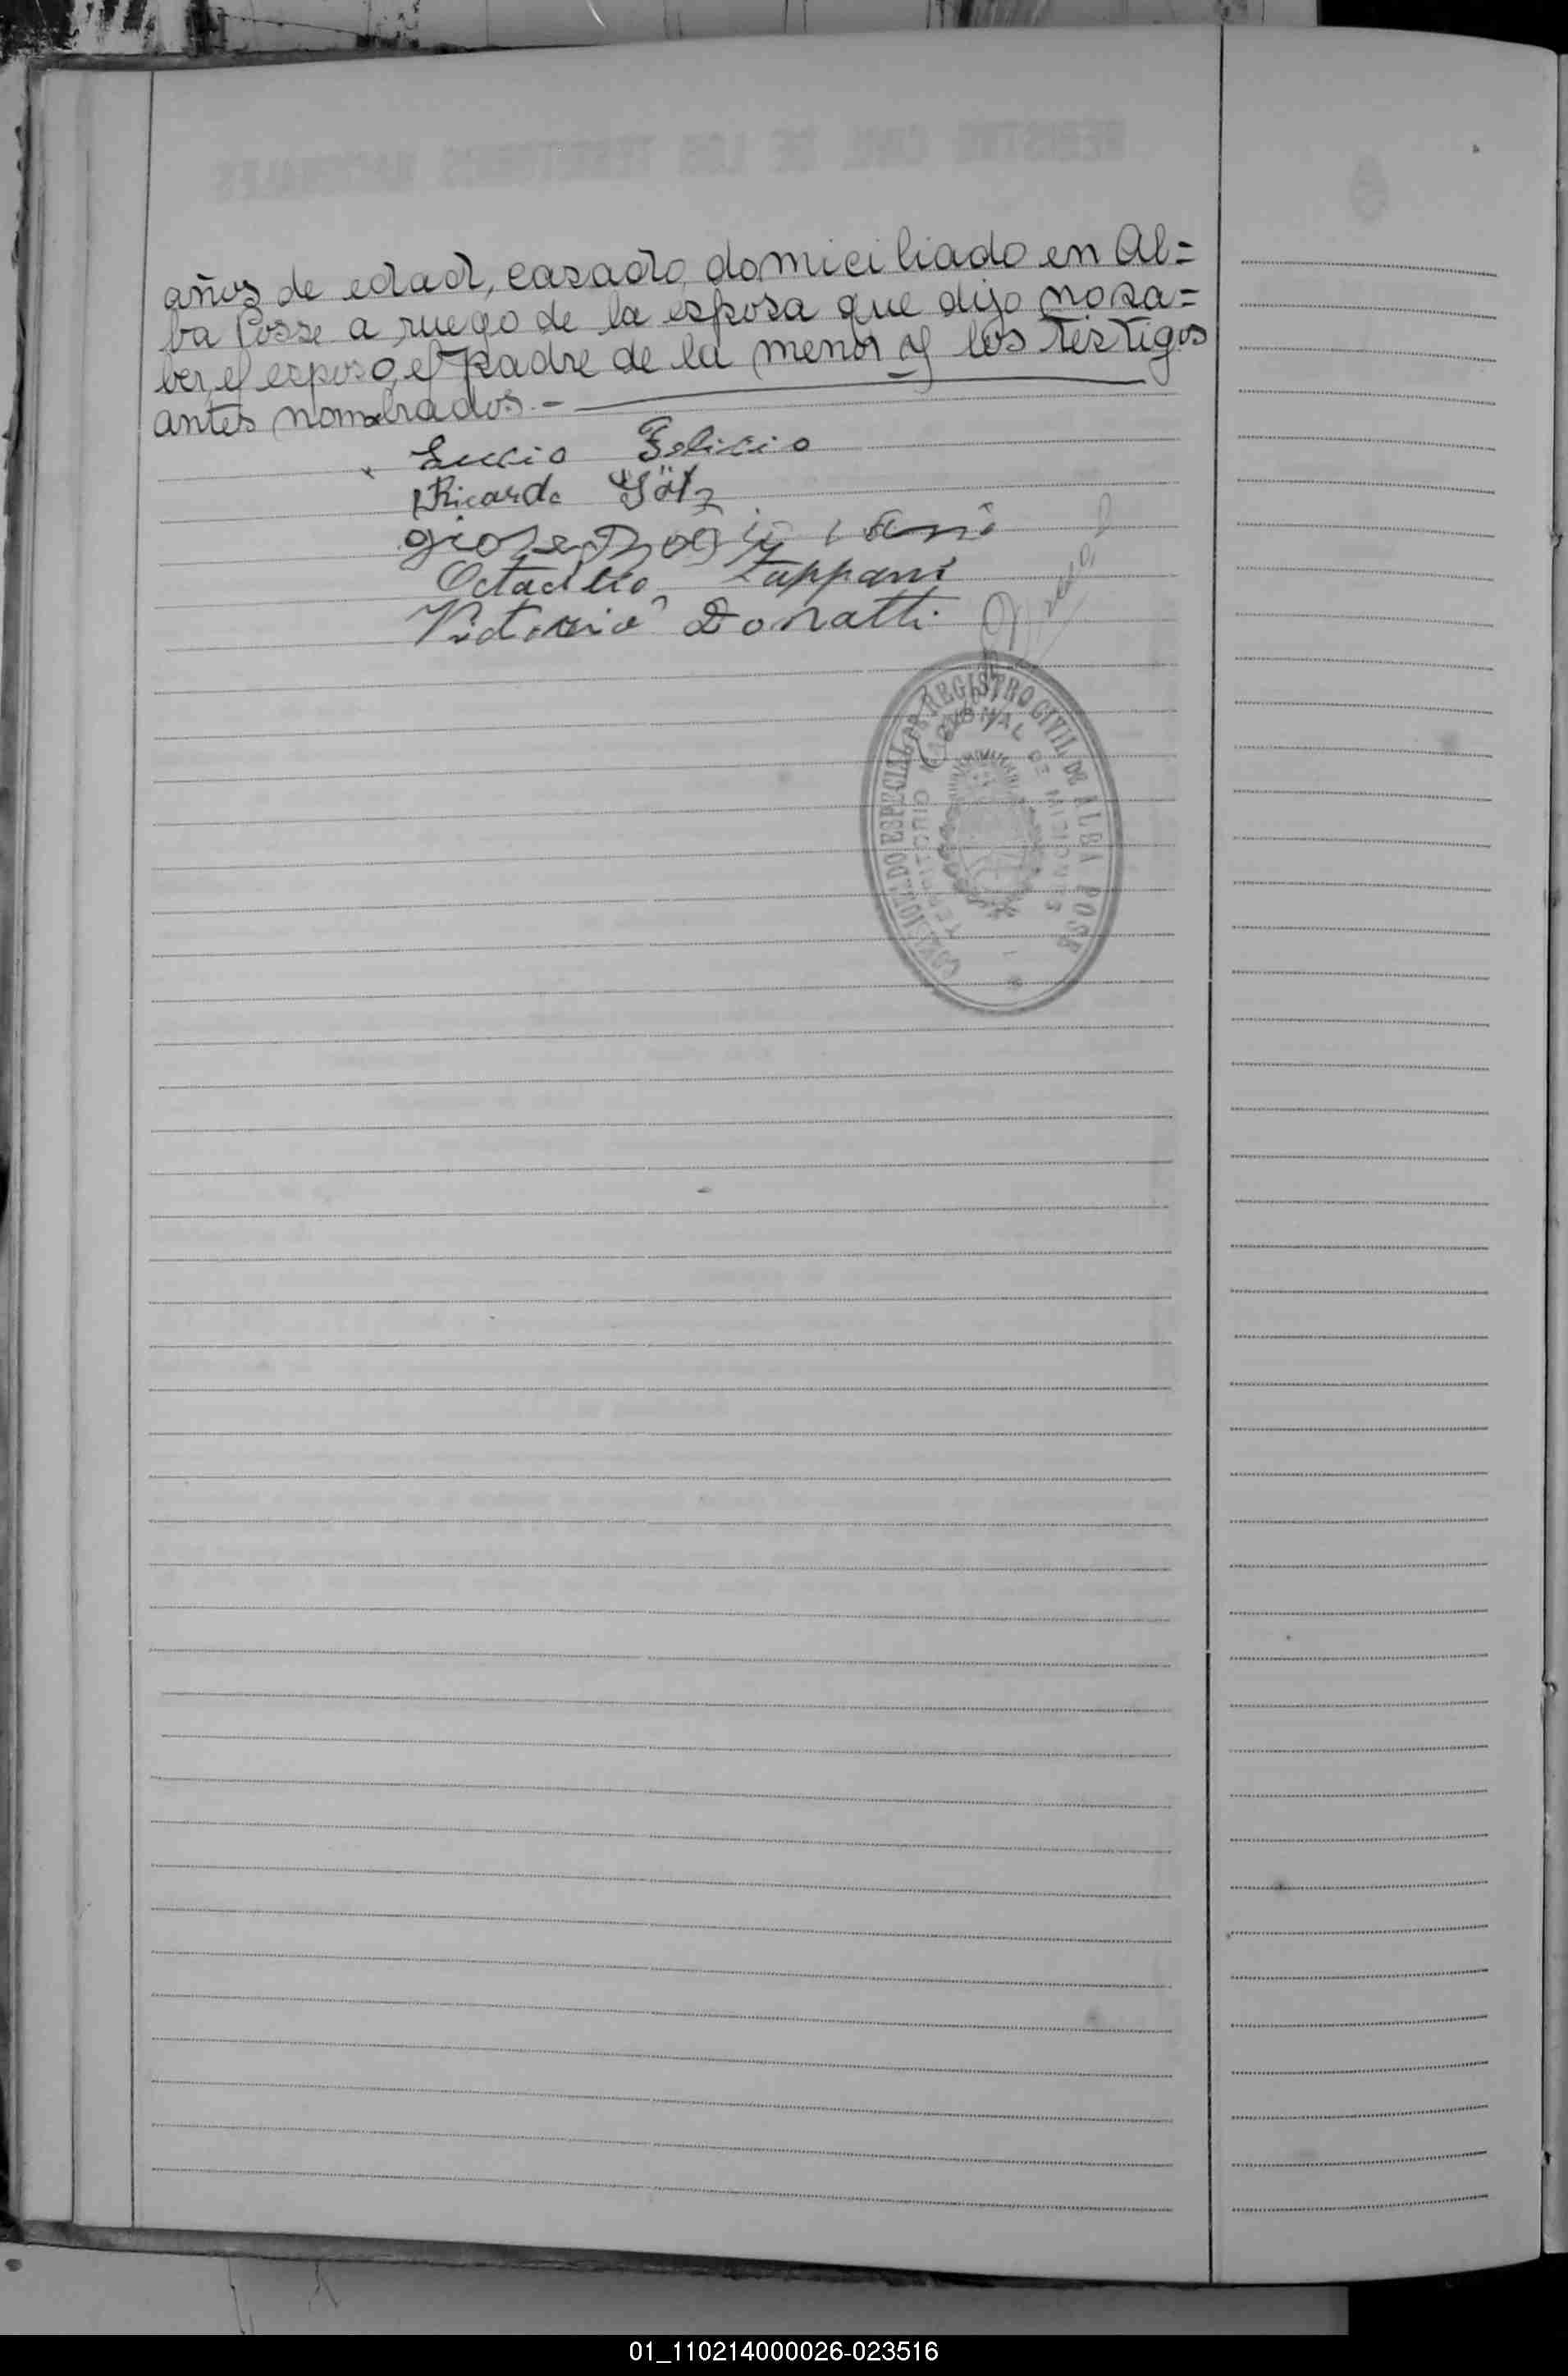 años de edad, casado, domiciliado en Al=
ba Posse a ruego de la esposa que dijo no sa=
ber, el esposo, el padre de la menor y los testigos
antes nombrados.-
Lucio Felicio
Ricardo Götz
Octacilio Zappani
Victorio Donatti
COMISIONADO ESPECIAL DEL REGISTRO CIVIL DE ALBA POSE
TERRITORIO NACIONAL DE MISIONES
01_110214000026-023516